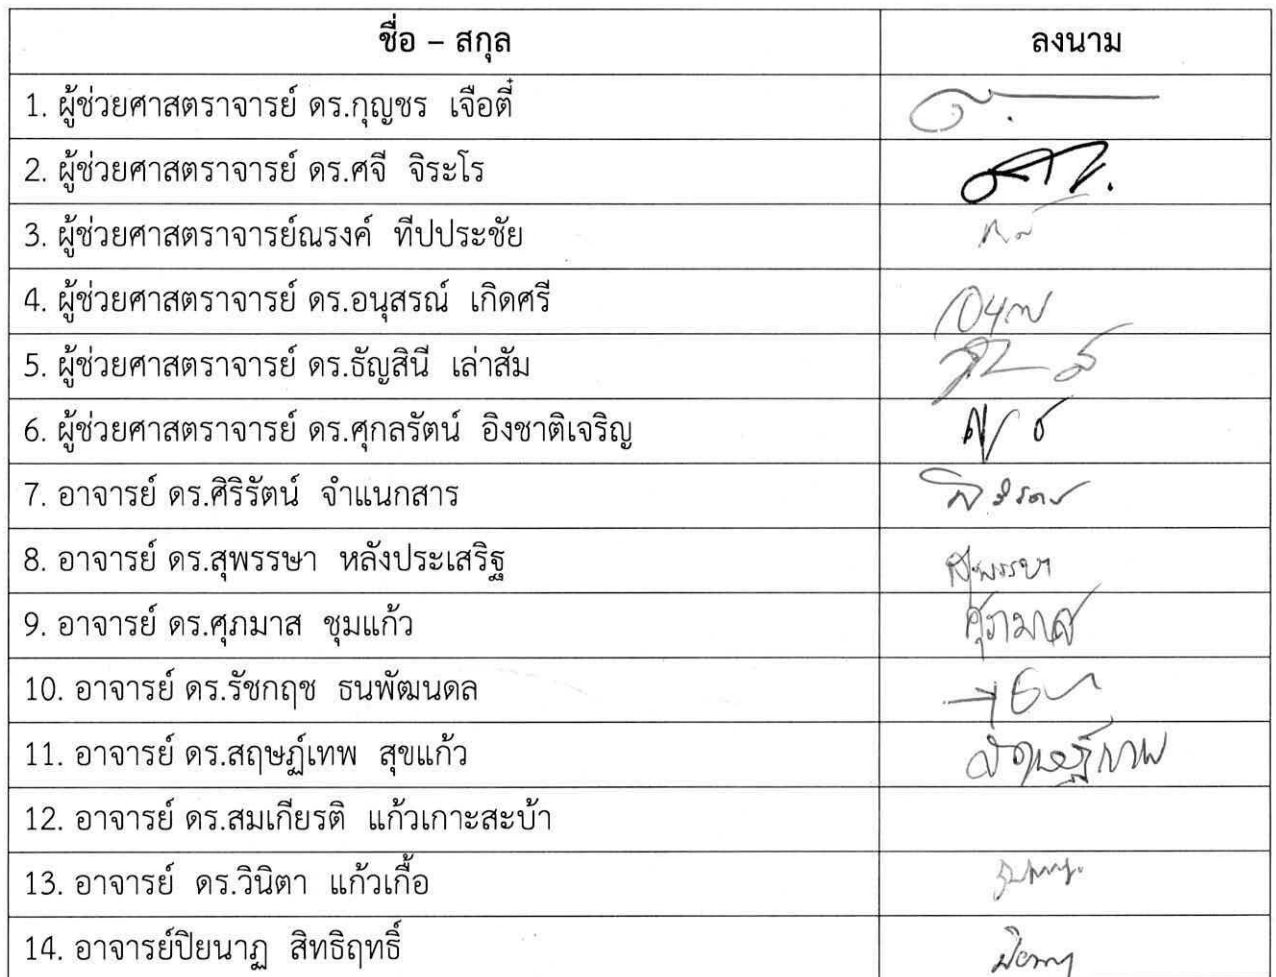 ชื่อ – สกุล ลงนาม
1. ผู้ช่วยศาสตราจารย์ ดร.กุญชร เจือตี๋
2. ผู้ช่วยศาสตราจารย์ ดร.ศจี จิระโร
3. ผู้ช่วยศาสตราจารย์ณรงค์ ทีปประชัย
4. ผู้ช่วยศาสตราจารย์ ดร.อนุสรณ์ เกิดศรี
5. ผู้ช่วยศาสตราจารย์ ดร.ธัญสินี เล่าสัม
6. ผู้ช่วยศาสตราจารย์ ดร.ศุกลรัตน์ อิงชาติเจริญ
7. อาจารย์ ดร.ศิริรัตน์ จำแนกสาร
8. อาจารย์ ดร.สุพรรษา หลังประเสริฐ สุพรรษา
9. อาจารย์ ดร.ศุภมาส ชุมแก้ว ศุภมาส
10. อาจารย์ ดร.รัชกฤช ธนพัฒนดล
11. อาจารย์ ดร.สฤษฏ์เทพ สุขแก้ว สฤษฏ์เทพ
12. อาจารย์ ดร.สมเกียรติ แก้วเกาะสะบ้า
13. อาจารย์ ดร.วินิตา แก้วเกื้อ
14. อาจารย์ปิยนาฏ สิทธิฤทธิ์